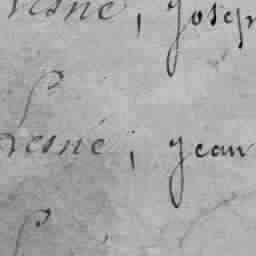 Lesné, Joseph
Lesné, jean